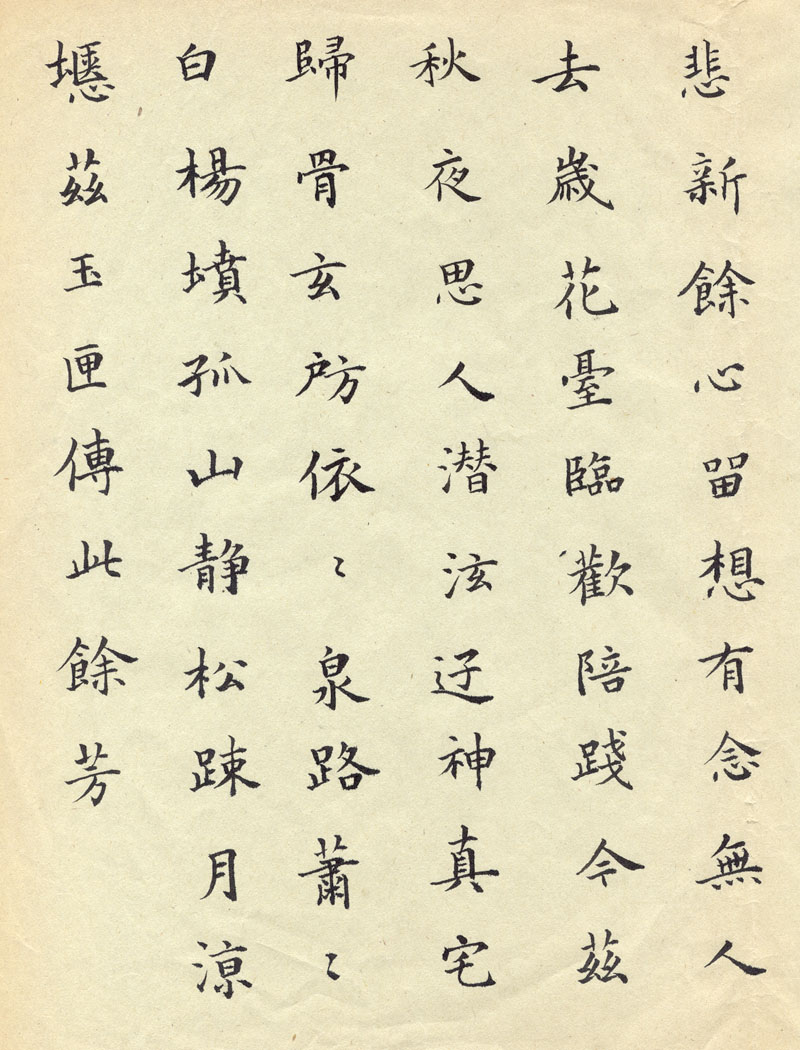 悲新餘心留想有念無人
去歲花臺臨歡陪踐今茲
秋夜思人潜泫迓神真宅
歸骨玄房依〻泉路蕭〻
白楊墳孤山静松踈月涼
茲玉匣傳此餘芳